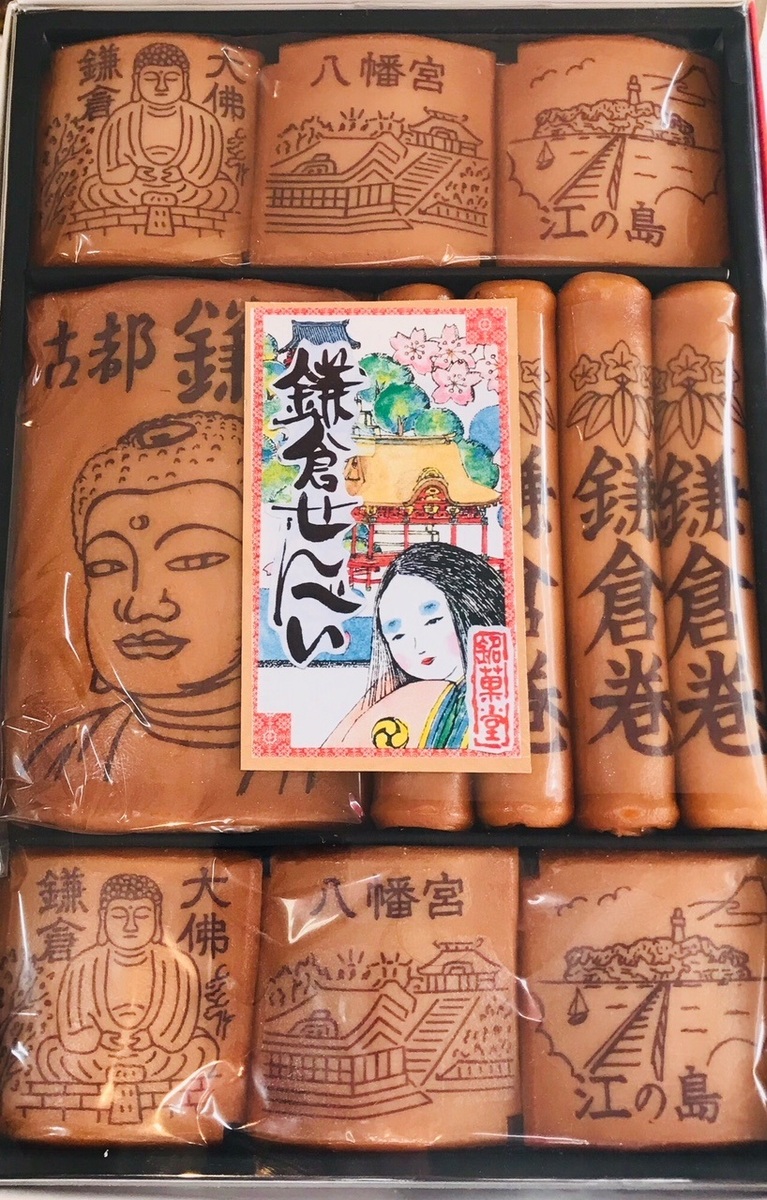 鎌倉
大佛
八幡宮
江の島
古都
鎌倉せんべい
銘菓堂
鎌倉巻
鎌倉巻
鎌倉
大佛
八幡宮
江の島